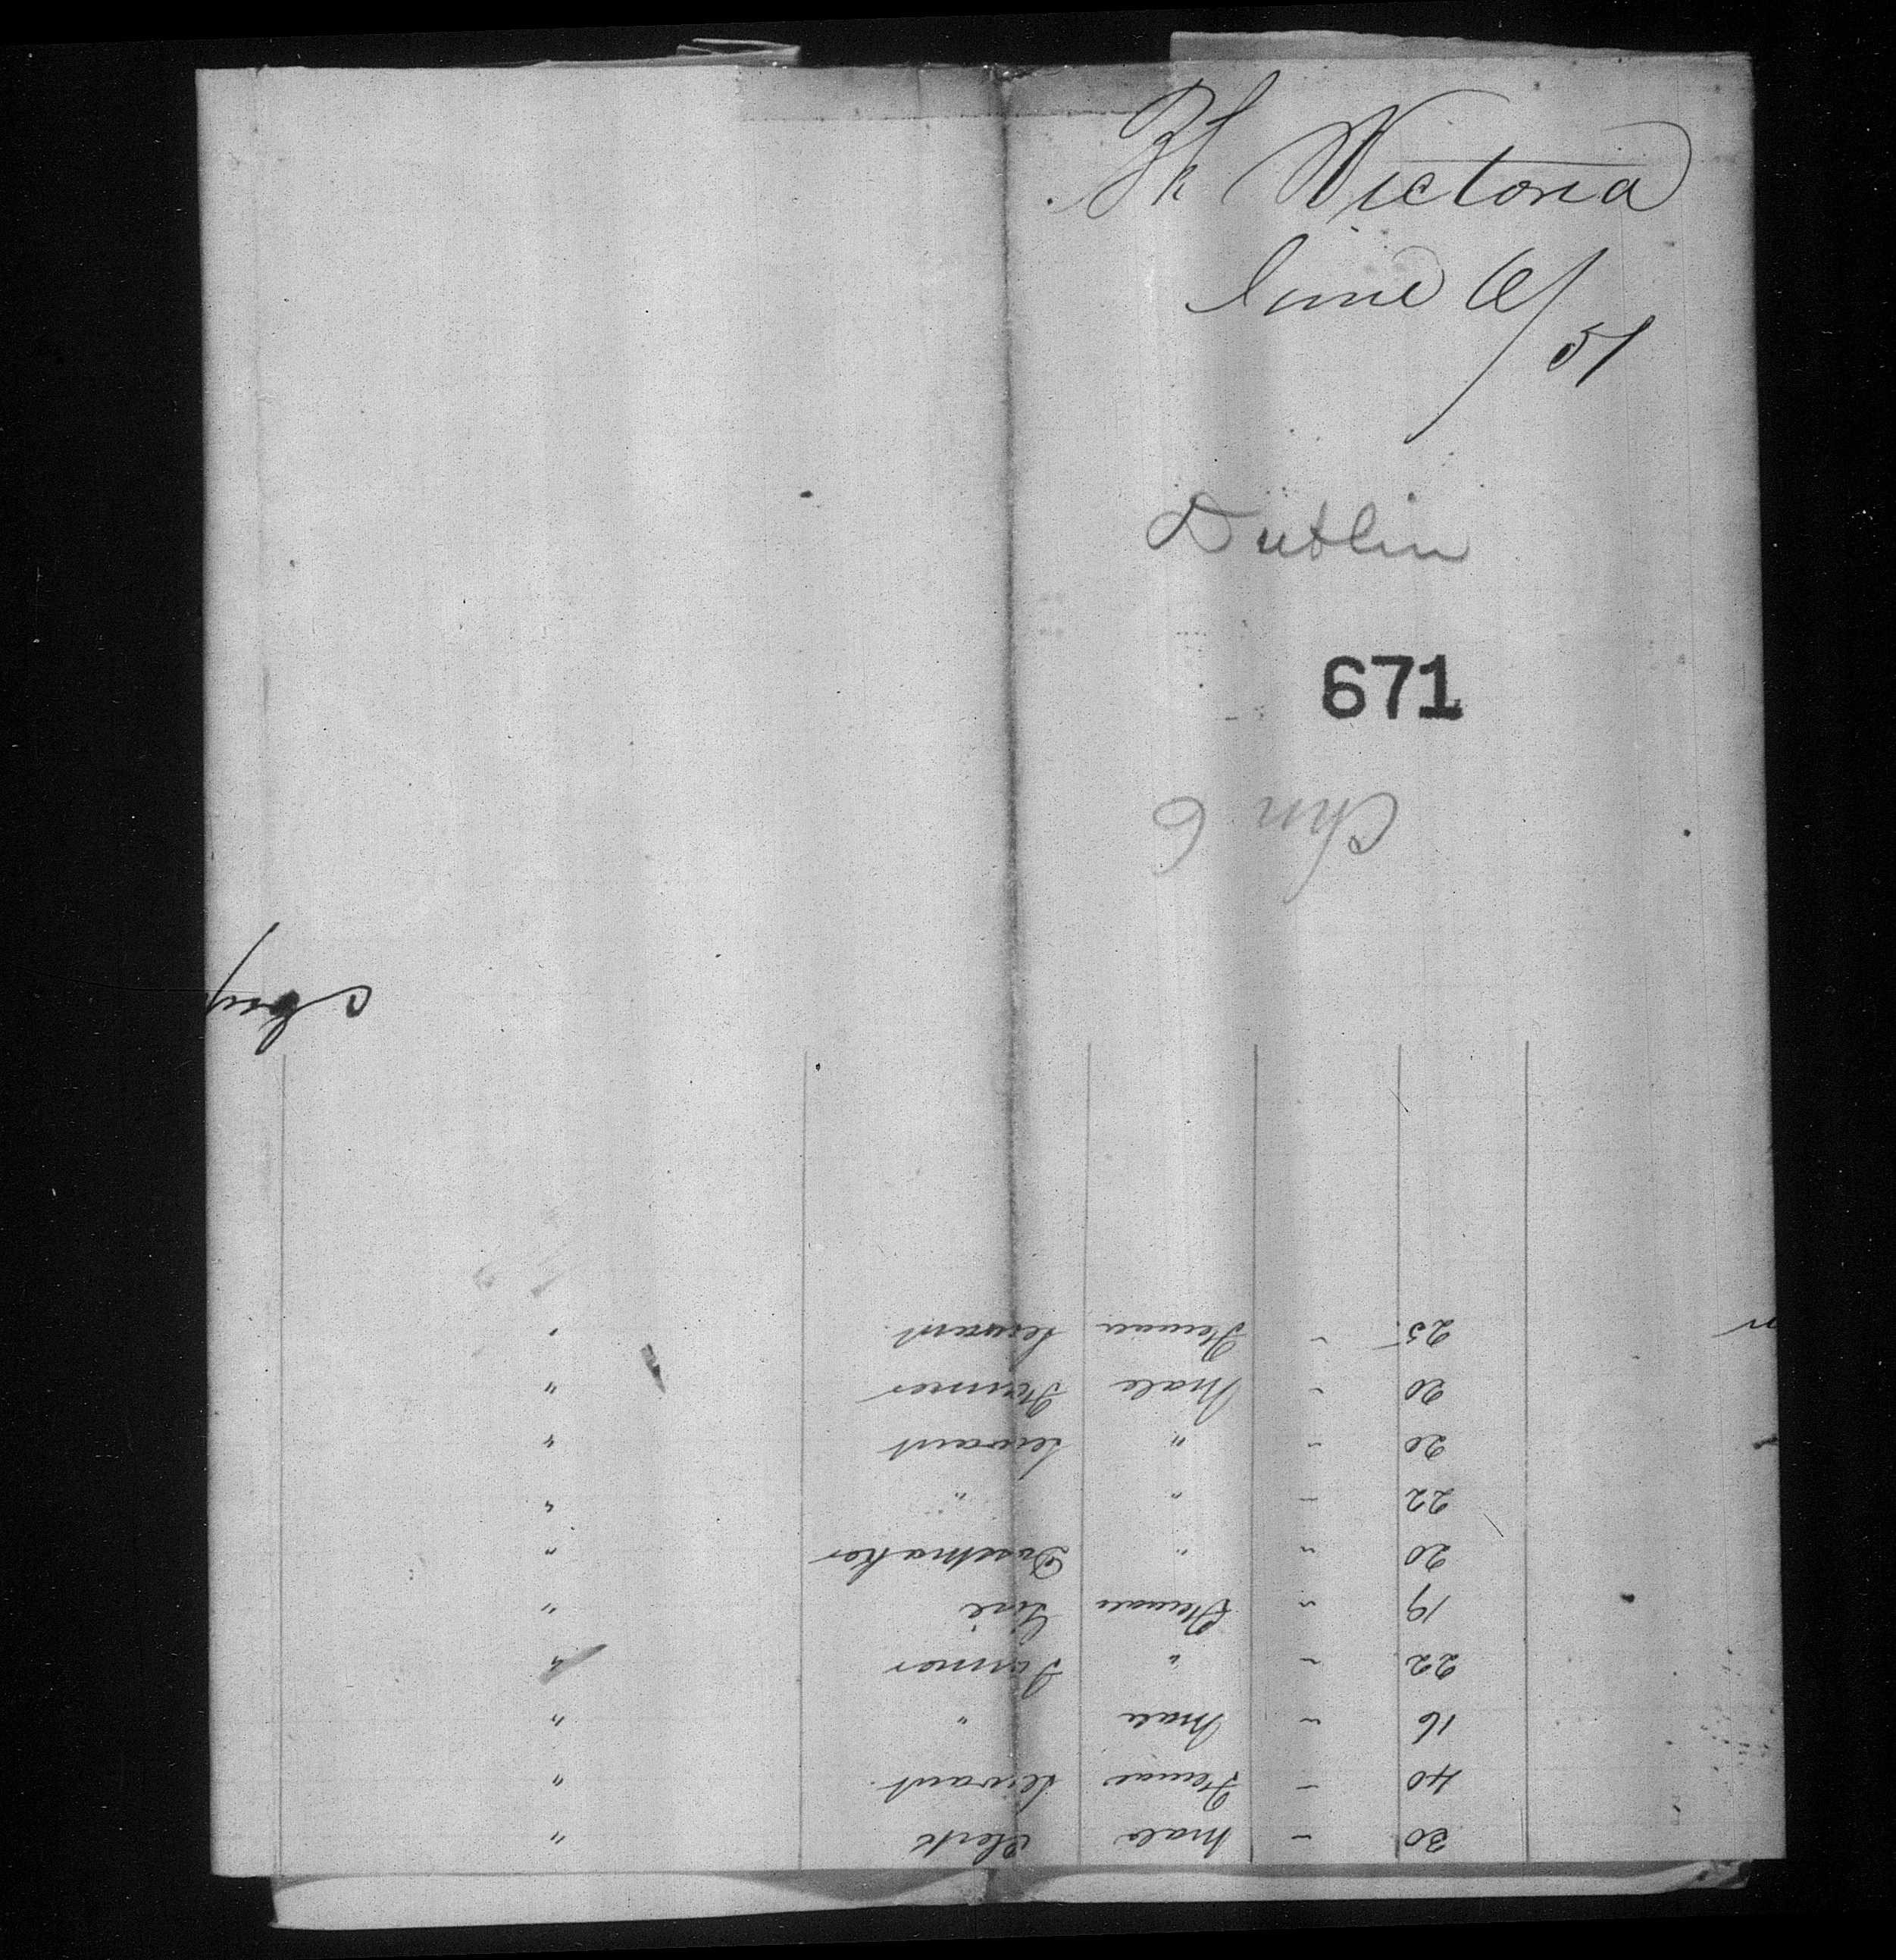 Bk Victoria
June 6/51
Dublin
671
Chn 6
30 - Male Clerk "
40 - Female Servant "
16 " Male " "
22 " " Farmer "
19 " Female Girl "
20 " " Dressmaker "
22 - " " "
20 " " Servant "
20 " Male Farmer "
25 " Female Servant "